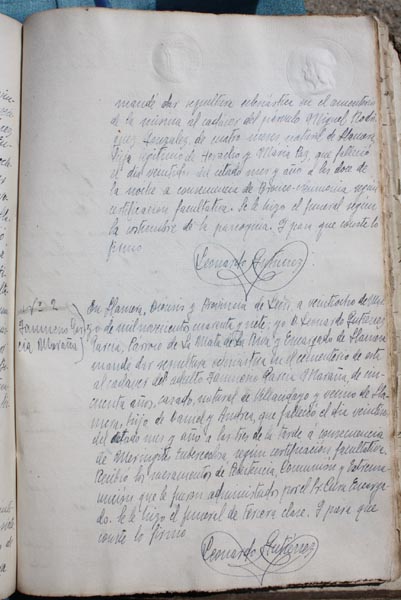 mandé dar sepultura eclesiástica en el cementerio
de la misma al cadáver del párvulo Miguel Rodrí
guez González, de cuatro meses natural de Llamera
hijo legítimo de Horacio y María Paz, que falleció
el día veintidos del citado mes y año a las doce de
la noche a consecuencia de Bronco-neumonía según
certificación facultativa. Se le hizo el funeral según
la costumbre de la parroquia. Y para que conste lo
firmo
Leonardo Gutiérrez
García Maraña
En Llamera, Diócesis y Provincia de León a veintiocho de
de mil novecientos cuarenta y siete; yo D. Leonardo Gutiérrez
García, Párroco de La Mata de la Riva y Encargado de Llamera
mandé dar sepultura eclesiástica en el cementerio de esta
al cadáver del adulto García Maraña, de cin
cuenta años, casado, natural de y vecino de Lla
mera, hijo de y Andrea, que falleció el día
del citado mes y año a las tres de la tarde a consecuencia
de Meningitis tuberculosa según certificación facultativa.
Recibió los sacramentos de Penitencia, Comunión y Extrema
unción que le fueron administrados por el Sr. Cura Encarga
do. Se le hizo el funeral de tercera clase. Y para que
conste lo firmo
Leonardo Gutiérrez